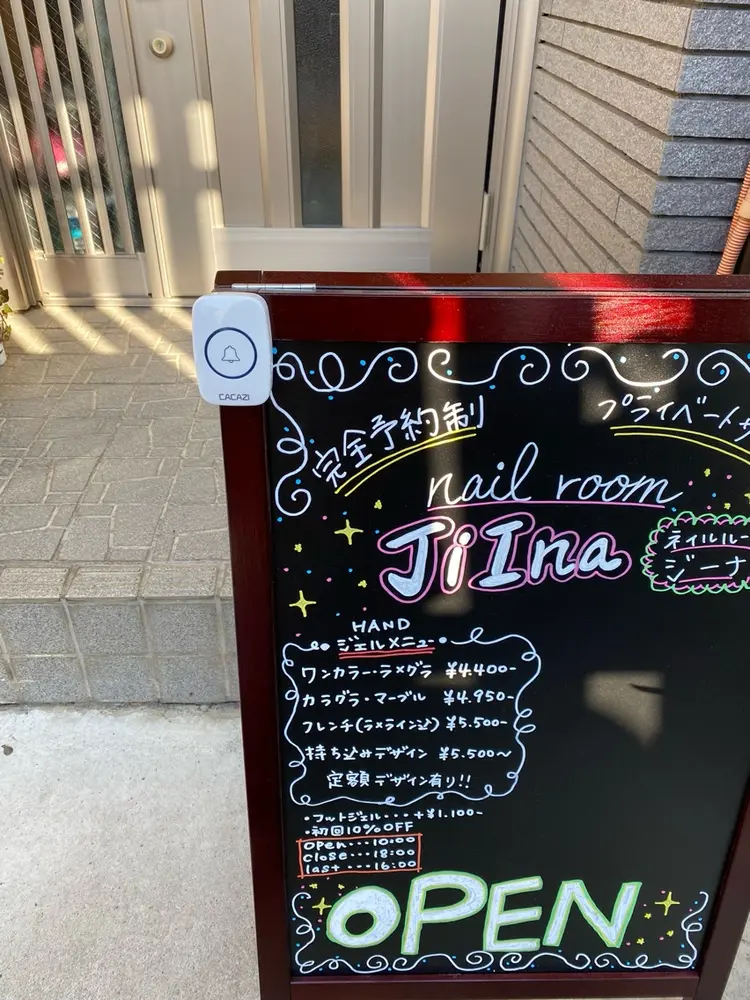 CACAZI
完全予約制
プライベートサ
nail room
JiIna
ネイルルー
ジーナ
HAND
ジェルメニュー
ワンカラー・ラメグラ ¥4.400-
カラグラ・マーブル ¥4.950-
フレンチ(ラメライン込) ¥5.500-
持ち込みデザイン ¥5.500〜
定額デザイン有り!!
・フットジェル・・・+¥1.100-
・初回10%OFF
open・・・10:00
close・・・18:00
last・・・16:00
OPEN